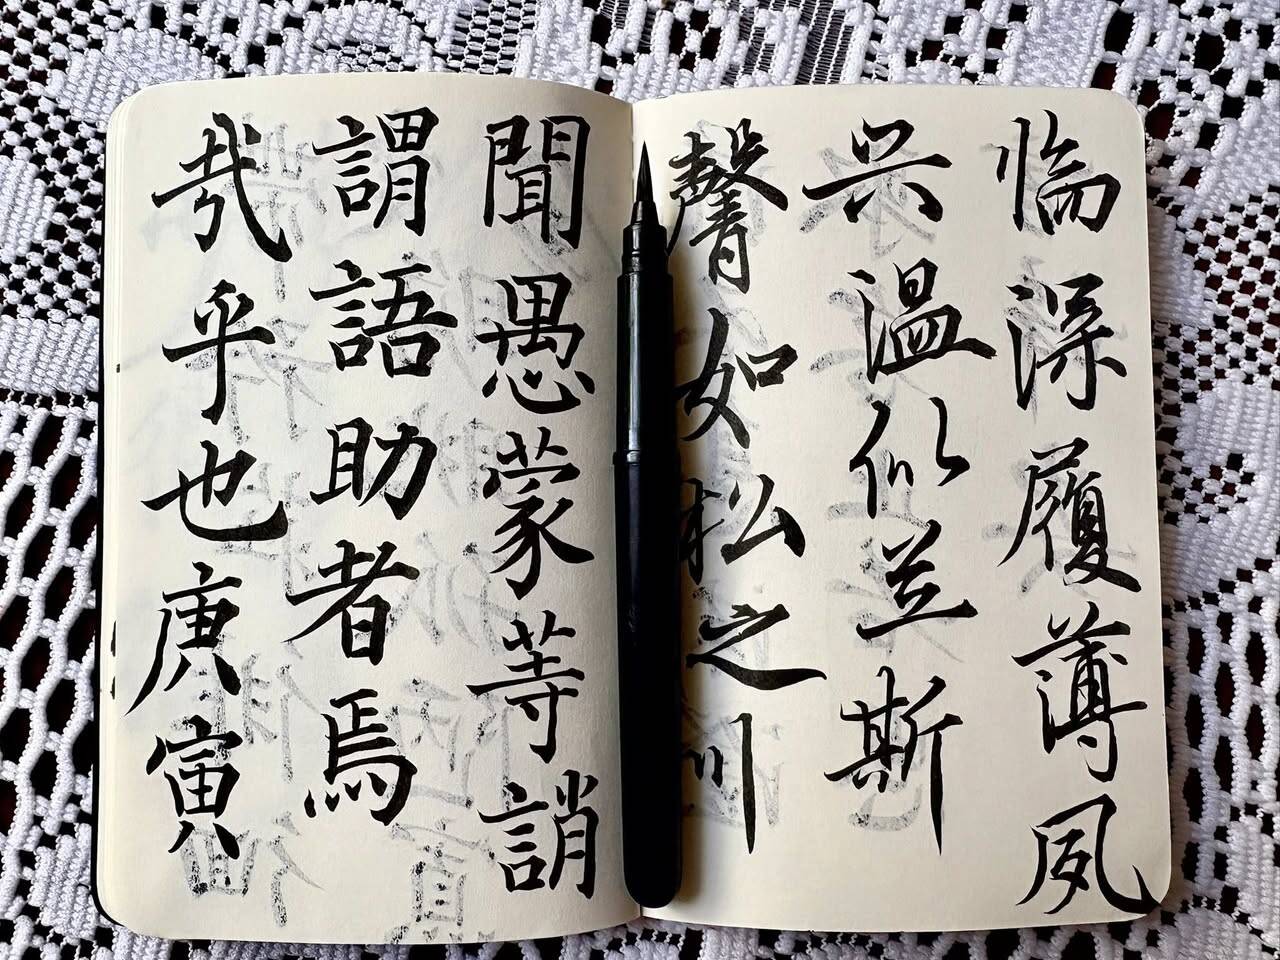 临深履薄夙
兴温似兰斯
馨如松之川
聞愚蒙等誚
謂語助者焉
哉乎也庚寅